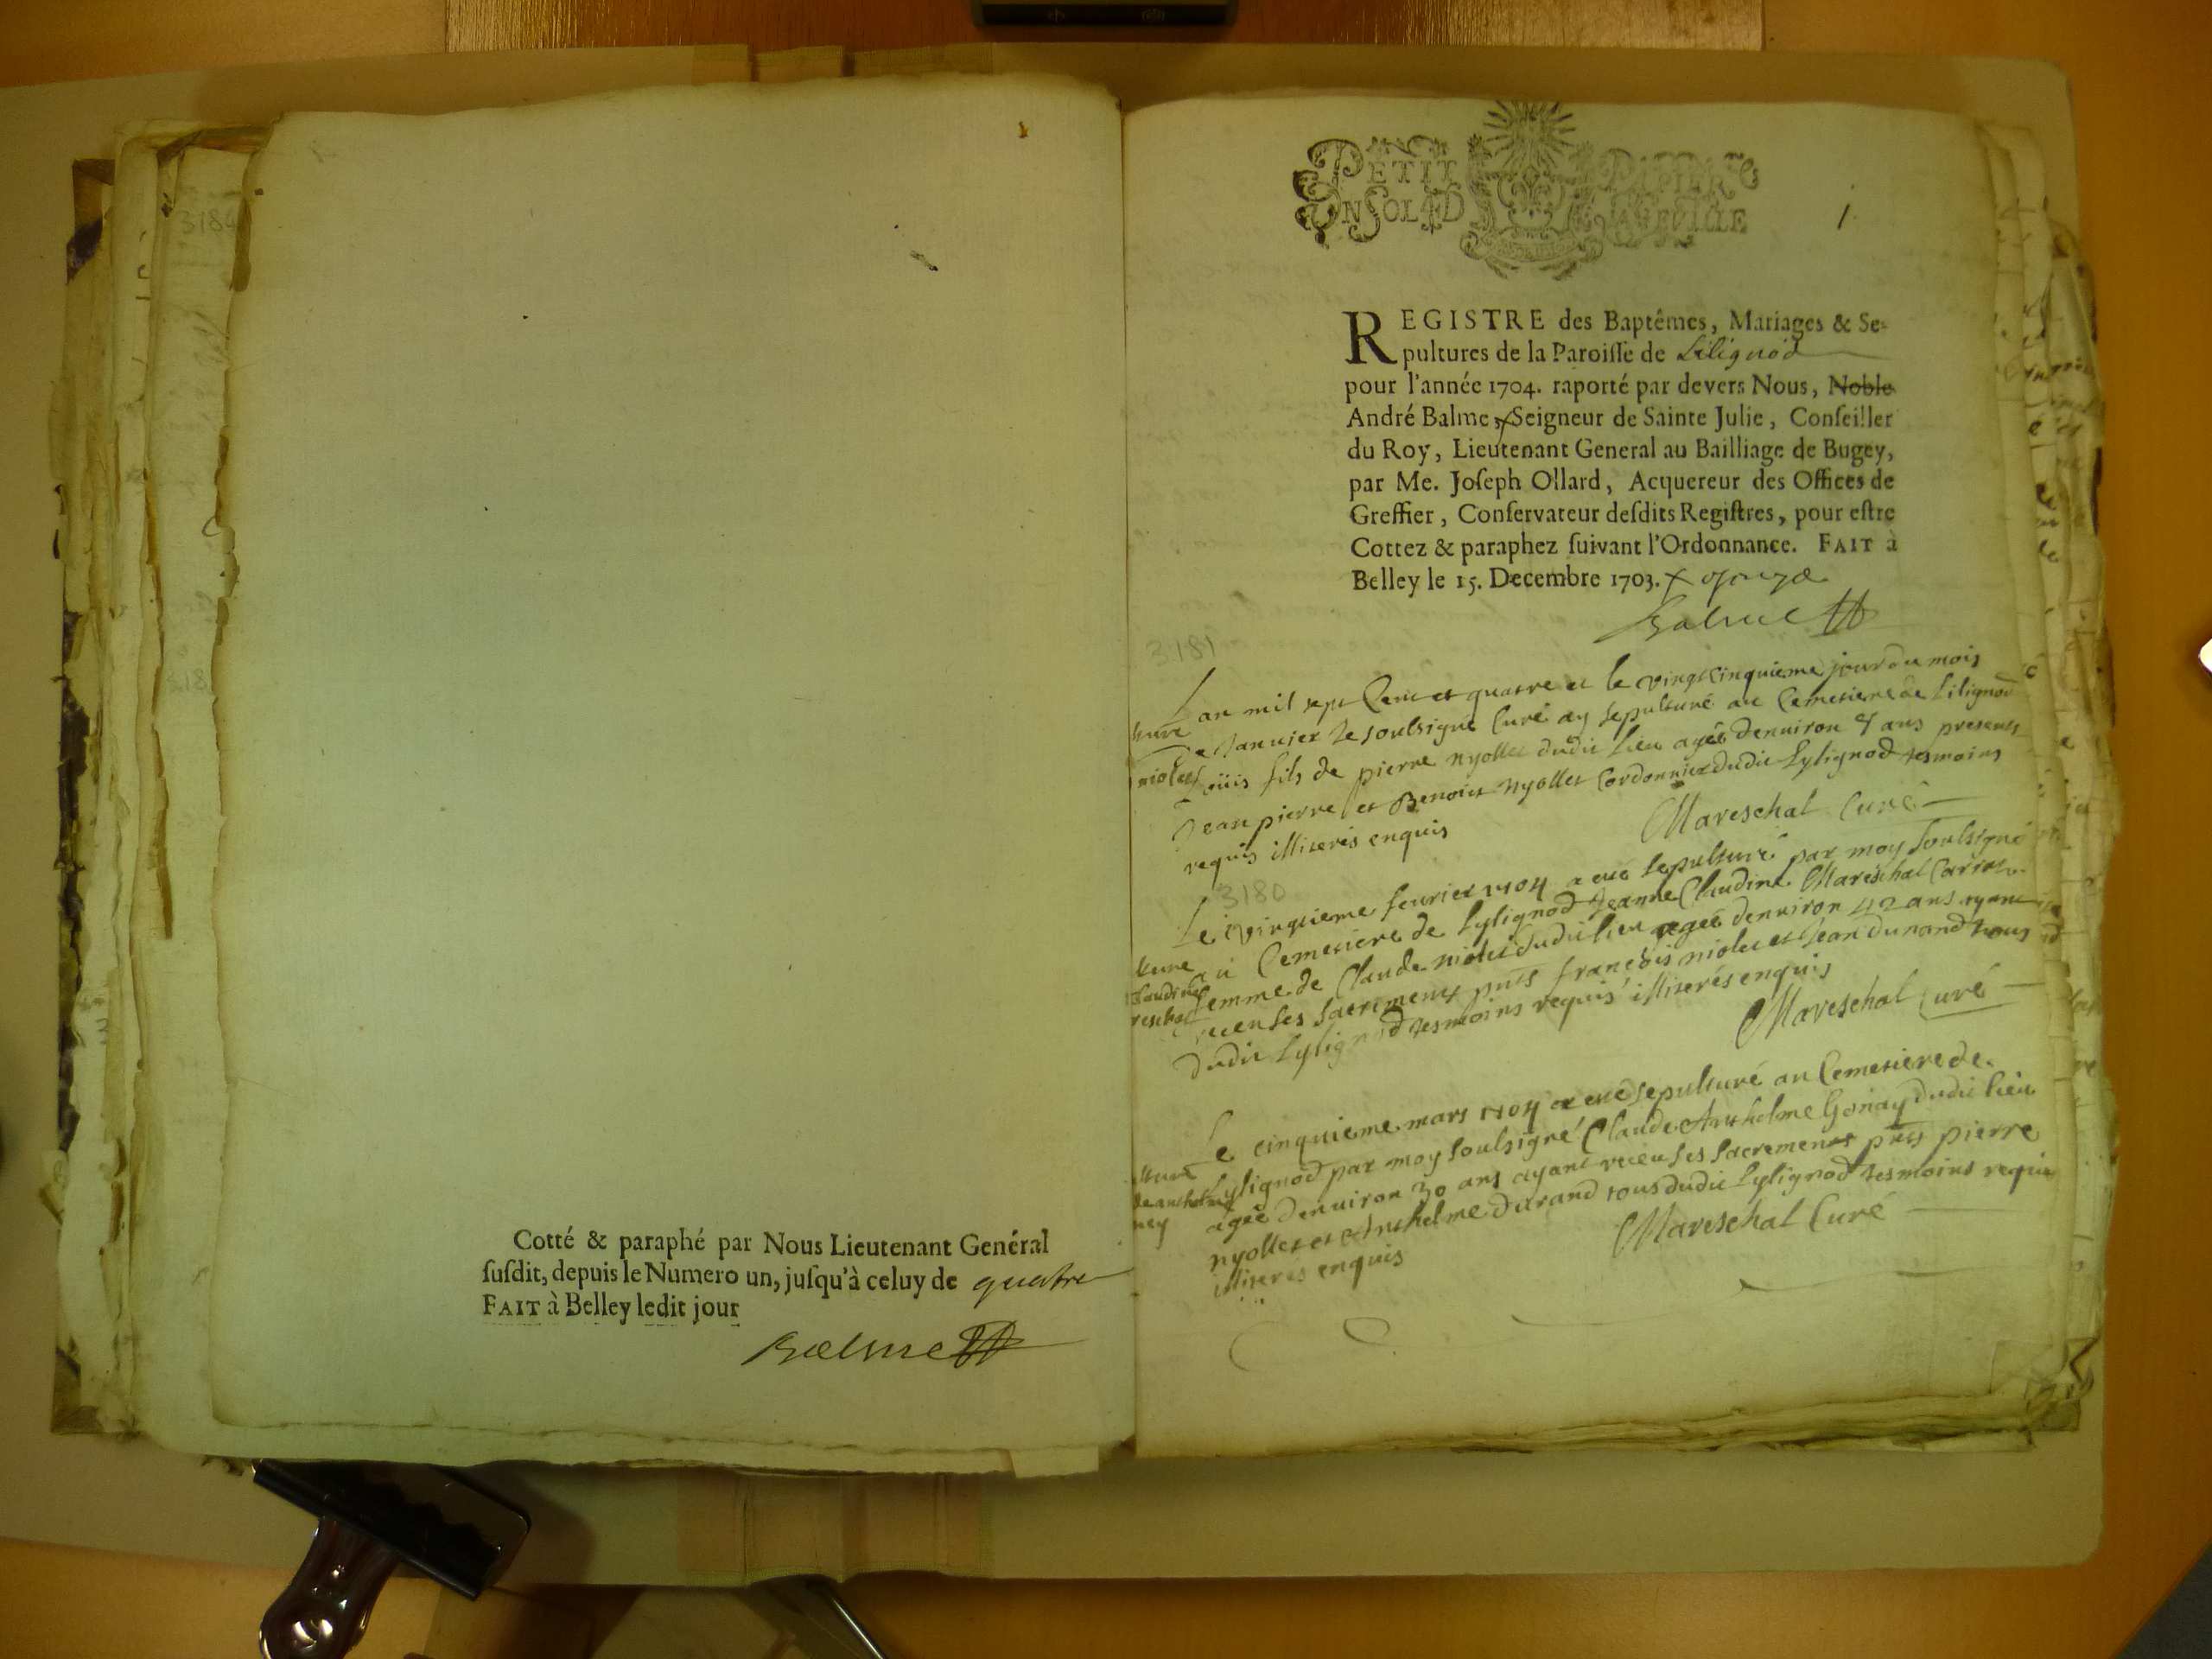 3184
318
Cotté & paraphé par Nous Lieutenant Genéral
susdit, depuis le Numero un, jusqu'à celuy de quatre
FAIT à Belley ledit jour
Balme
PETIT PAPIER
UN SOL
1
REGISTRE des Baptêmes, Mariages & Se-
pultures de la Paroisse de Lilignod
pour l'année 1704. raporté par devers Nous, Noble
André Balme, Seigneur de Sainte Julie, Conseiller
du Roy, Lieutenant General au Bailliage de Bugey,
par Me. Joseph Ollard, Acquereur des Offices de
Greffier, Conservateur desdits Registres, pour estre
Cottez & paraphez suivant l'Ordonnance. FAIT à
Belley le 15. Decembre 1703.
Balme
3181
Lan mil sept Cent et quatre et le vingtcinquieme jour du mois
De Janvier Je soulsigné Curé ay sepulturé au Cemetiere de Lilignod
Loüis fils de pierre nyollet dudit Lieu agée denuiron ans presents
Jean pierre et Benoit nyollet Cordonnier dudit Lylignod tesmoins
requis illiterés enquis
Mareschal Curé
3180
Le vingtieme feurier 1704 a eté sepulturé par moy soulsigné
au Cemetiere de Lylignod Jeanne Claudine Mareschal
femme de Claude niolet dudit lieu agée denuiron 42 ans ayant
receu ses sacrements pnts françois niolet et Jean Dunand tous
dudit Lylignod tesmoins requis illiterés enquis
Mareschal Curé
Le cinquieme mars 1704 a eté sepulturé au Cemetiere de
Lylignod par moy soulsigné Claude Anthelme Gonay dudit lieu
agée denuiron 30 ans ayant receu ses sacrements pnts pierre
nyollet et Anthelme durand tous dudit Lylignod tesmoins requis
illiteres enquis
Mareschal Curé